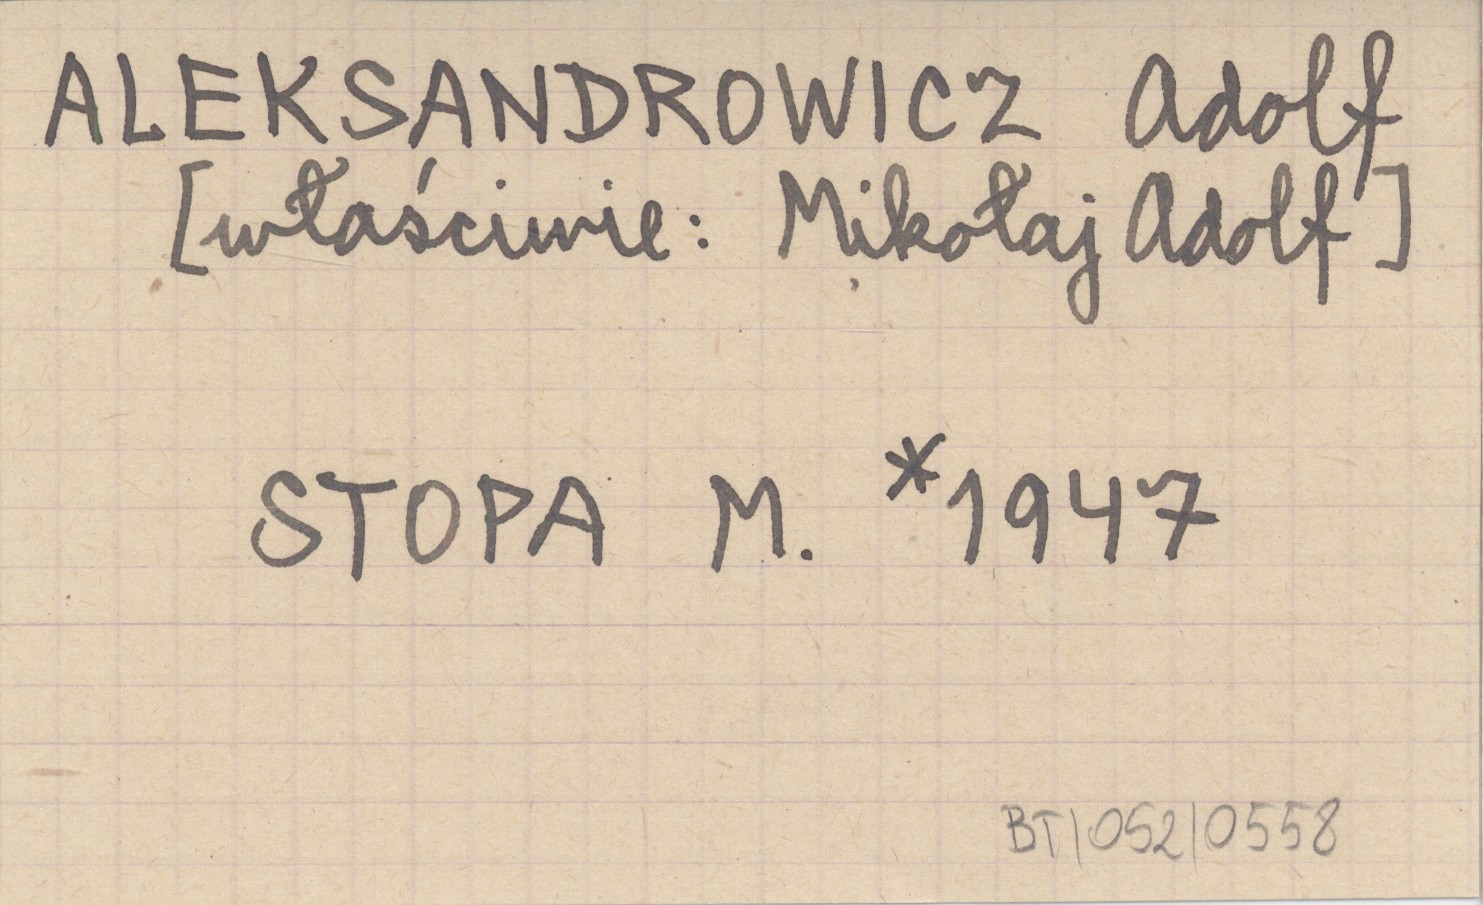 ALEKSANDROWICZ Adolf
[właściwie: Mikołaj Adolf]
STOPA M. *1947
BT/052/0558